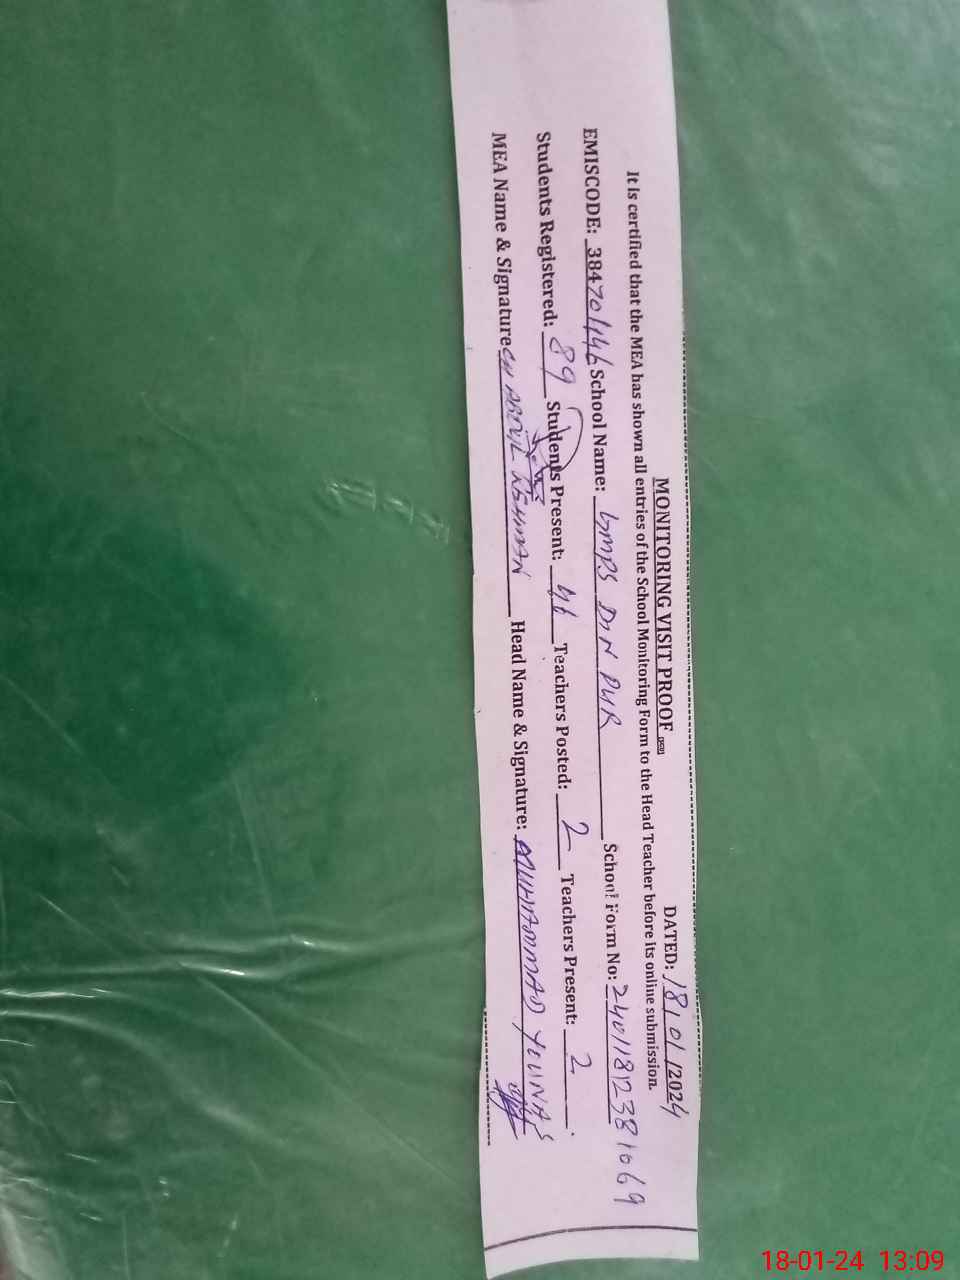 MONITORING VISIT PROOF
DATED: 18/01/2024
It is certified that the MEA has shown all entries of the School Monitoring Form to the Head Teacher before its online submission.
EMISCODE: 38470146 School Name: GMPS DIN PUR School Form No: 24011812381069
Students Registered: 89 Students Present: Teachers Posted: 2 Teachers Present: 2
MEA Name & Signature CH ABDUL REHMAN Head Name & Signature: MUHAMMAD YOUNAS
18-01-24 13:09